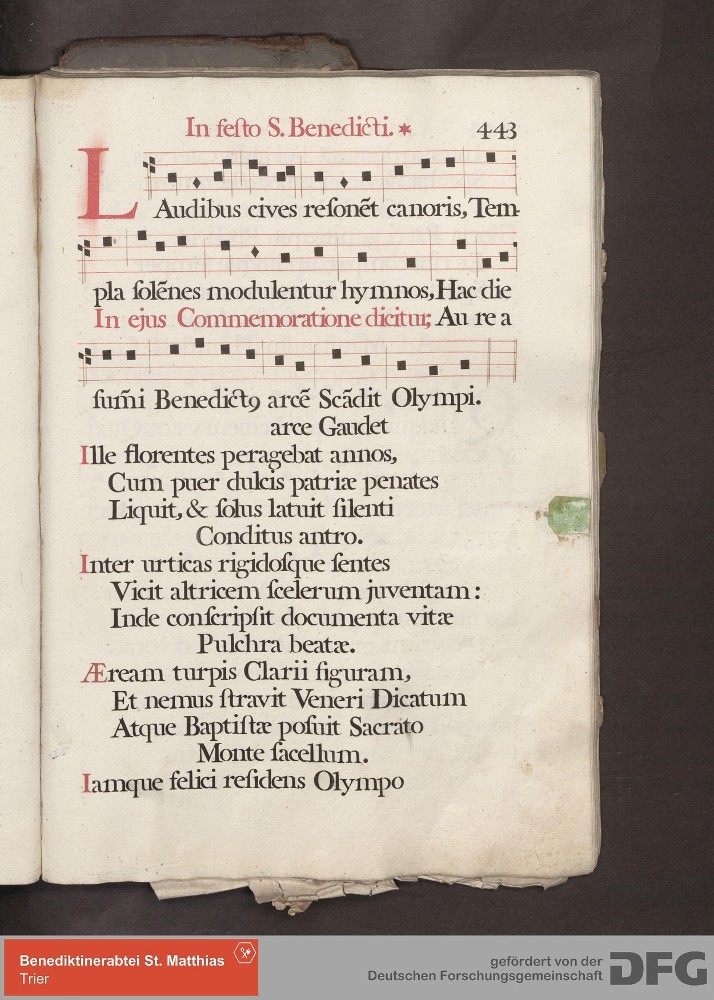 In feſto S. Benedicti. * 443
LAudibus cives reſonēt canoris, Tem-
pla ſolēnes modulentur hymnos, Hac die
In ejus Commemoratione dicitur; Au re a
ſum̄i Benedictꝯ arcē Scādit Olympi.
arce Gaudet
Ille florentes peragebat annos,
Cum puer dulcis patriæ penates
Liquit, & ſolus latuit ſilenti
Conditus antro.
Inter urticas rigidoſque ſentes
Vicit altricem ſcelerum juventam:
Inde conſcripſit documenta vitæ
Pulchra beatæ.
Æream turpis Clarii figuram,
Et nemus ſtravit Veneri Dicatum
Atque Baptiſtæ poſuit Sacrato
Monte ſacellum.
Iamque felici reſidens Olympo
Benediktinerabtei St. Matthias
Trier
gefördert von der
Deutschen Forschungsgemeinschaft DFG